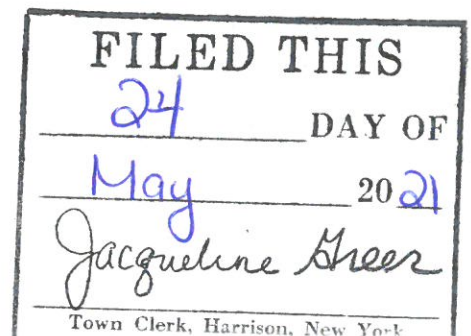 FILED THIS
24 DAY OF
May 2021
Jacqueline Greer
Town Clerk, Harrison, New York